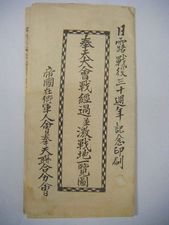 日露戰役三十週年記念印刷
奉天大會戰經過並激戰地一覽圖
帝國在鄕軍人會奉天聯合分會